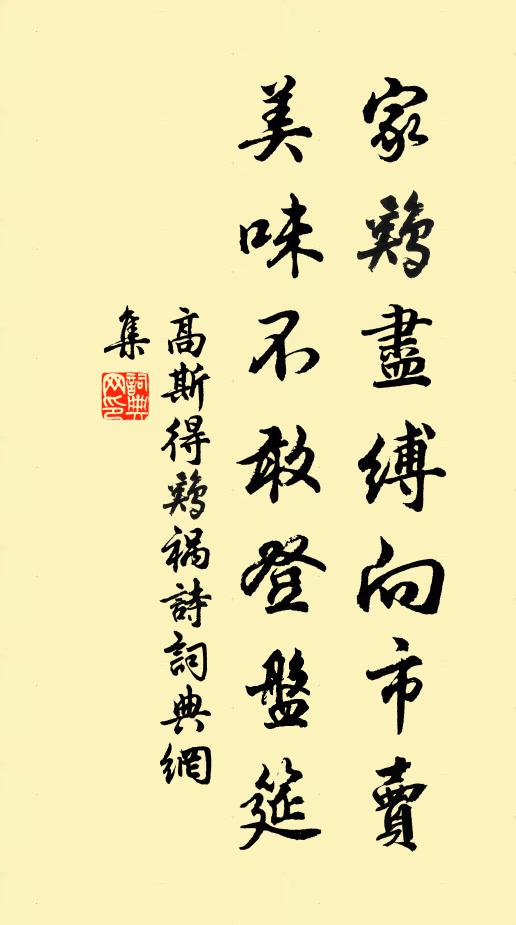 家鷄盡縛向市賣
美味不敢登盤筵
高斯得鷄禍詩詞典網
集
詞典
网印